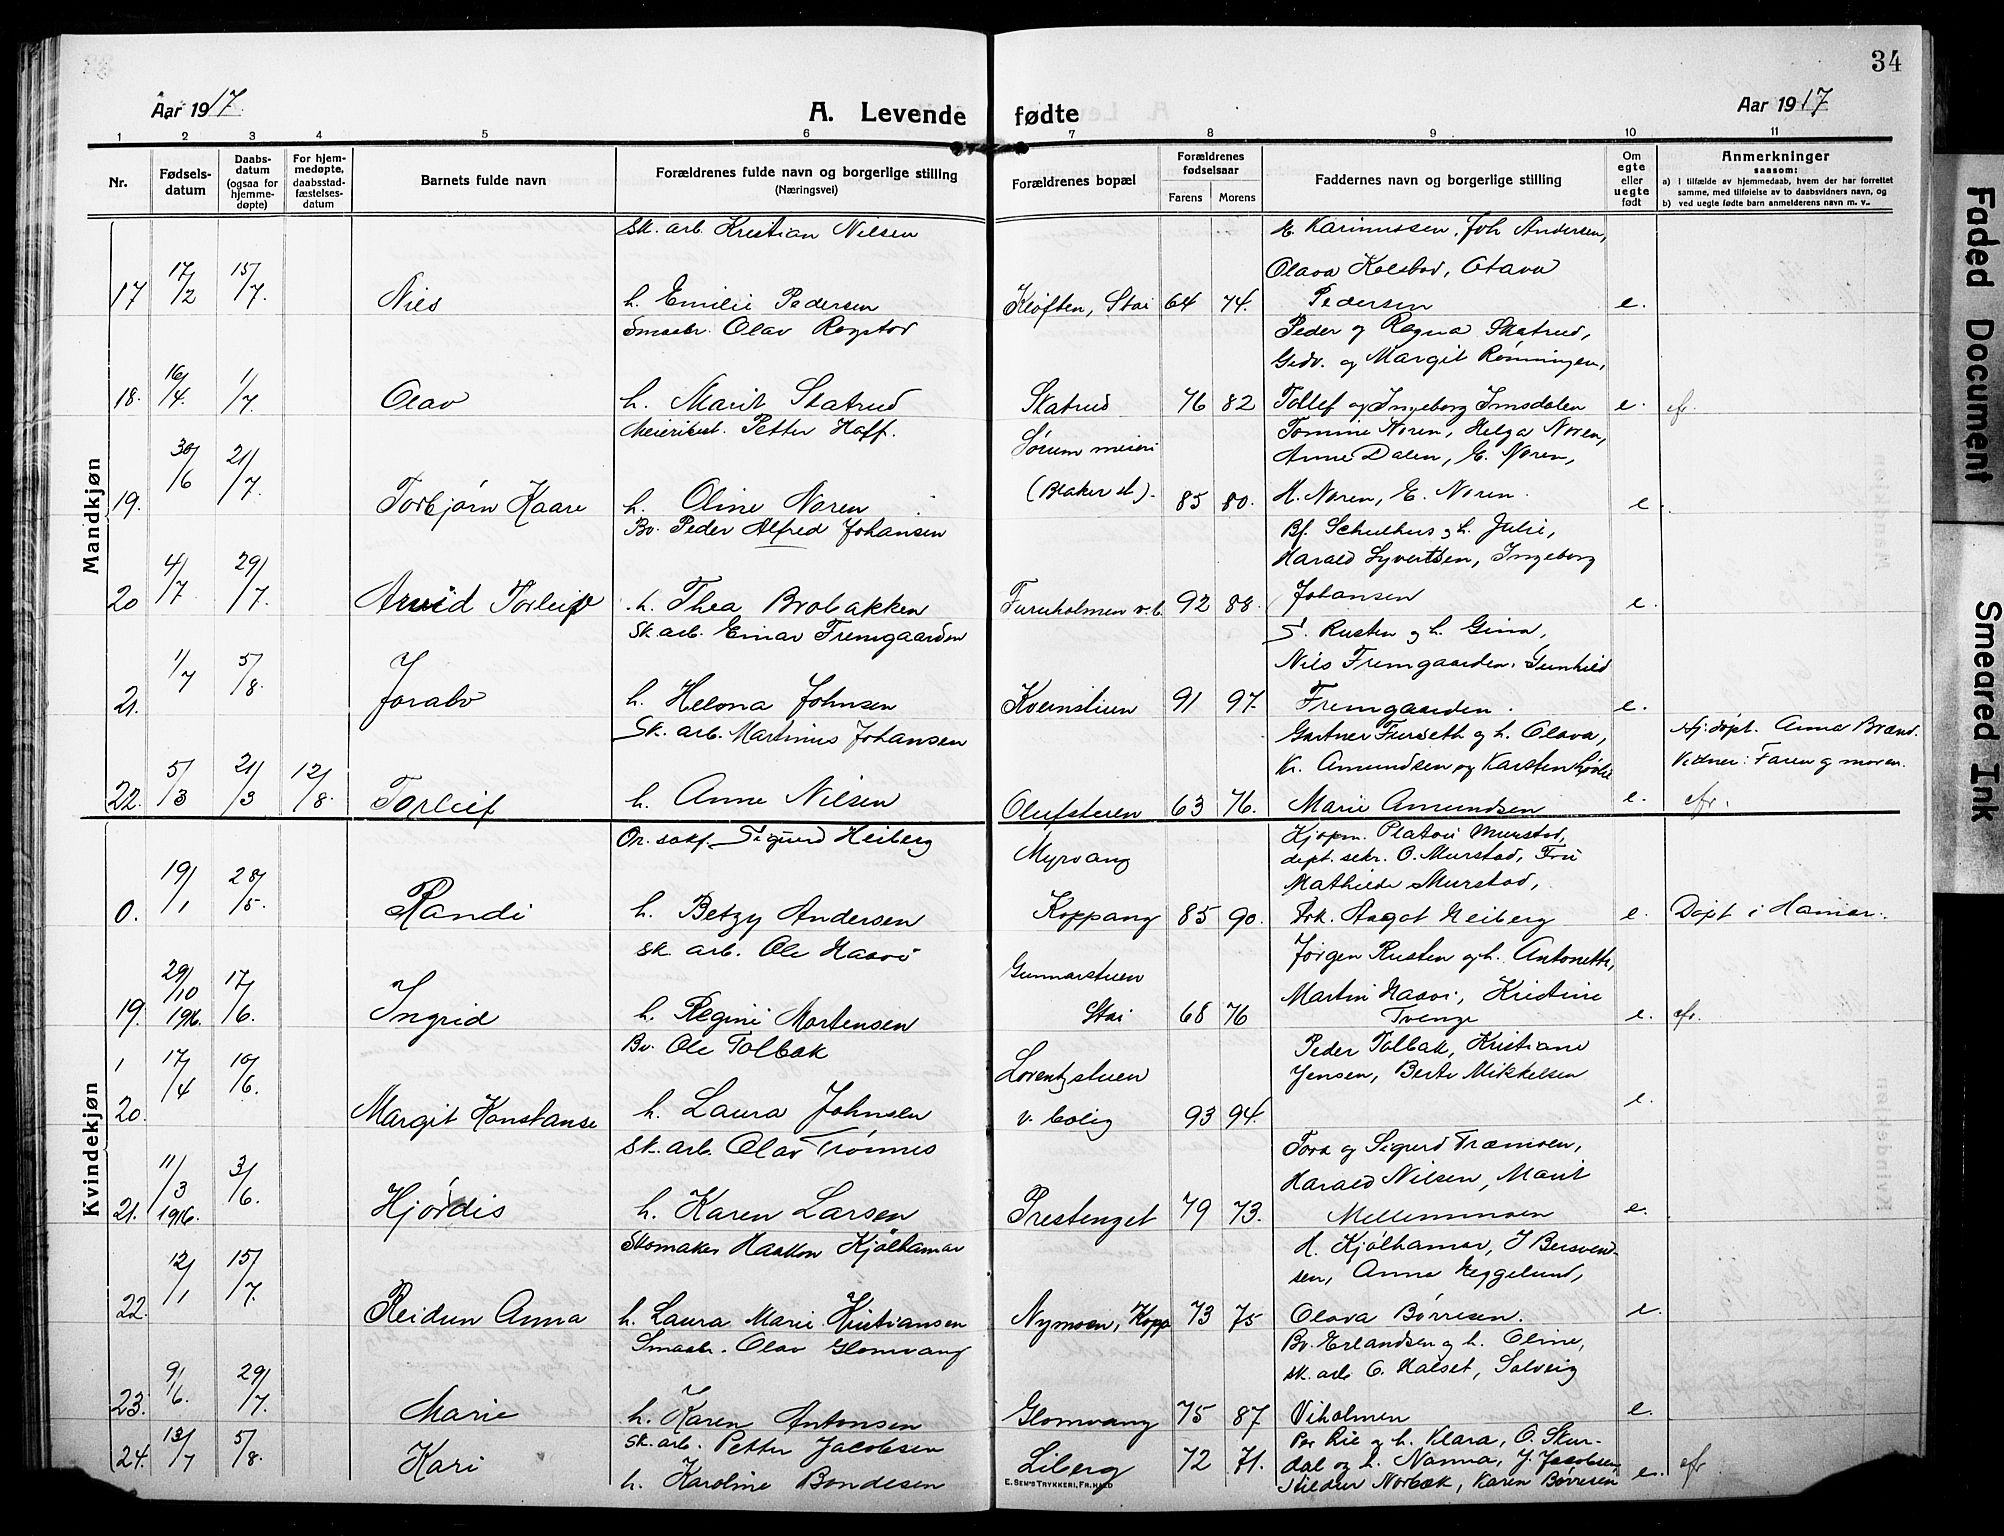 34
Aar 1917
A. Levende fødte
Aar 1917
1 2 3 4 5 6 7 8 9 10 11
Nr.
Fødsels-
datum
Daabs-
datum
(ogsaa for
hjemme-
døpte)
For hjem-
medøpte,
daabsstad-
fæstelses-
datum
Barnets fulde navn
Forældrenes fulde navn og borgerlige stilling
(Næringsvei)
Forældrenes bopæl
Forældrenes
fødselsaar
Farens Morens
Faddernes navn og borgerlige stilling
Om
egte
eller
uegte
født
Anmerkninger
saasom:
a) I tilfælde av hjemmedaab, hvem der har forrettet
samme, med tilføielse av to daabsvidners navn, og
b) ved uegte fødte barn anmelderens navn m. v.
Mandkjøn
Sk. arb. Kristian Nilsen
Joh Andersen,
Olava Kolstad, Otava
17 17/2 15/7 Nils h. Emilie Pedersen Kløften, Stai 64 74. Pedersen e.
Smaabr. Olav Rogstad
Peder og Ragna Skatrud,
Gudv. og Margit Rønningen,
18. 16/4 1/7 Olav h. Marit Skatrud Skatrud 76 82 Tollef og Ingeborg Imsdalen e. efr.
Meieribest. Petter Hoff.
Sørum meieri
Tomine Noren, Helga Noren,
Anne Dalen, E. Noren,
19. 30/6 21/7. Torbjørn Kaare h. Oline Noren (Blaker st). 85 80. M. Noren, E. Noren. e.
Bv. Peder Alfred Johansen
Bf. Schulhus og h. Julie,
Harald Syvertsen, Ingeborg
20 4/7 29/7. Arvid Torleif h. Thea Brobakken Furuholmen v.b. 92 88. Johansen e.
Sk. arb. Einar Fremgaarden
S. Rusten og h. Gina,
Nils Fremgaarden. Gunhild
21. 1/7 5/8. Jorals h. Helena Johnsen Kvernstuen 91 97. Fremgaarden. e.
Sk. arb. Martinus Johansen
Gartner Furseth og h. Olava,
Kr. Amundsen og Karsten
Hj.døpt. Anna Brænd.
Vidner: Faren og moren.
22. 5/3 21/3 12/8. Torleif h. Anne Nilsen Olufstuen 63 76. Marie Amundsen e. efr.
Kvindekjøn
Or. sakf. Sigurd Heiberg
Myrvang
Kjøpm. Platou Murstad,
dept. sekr. O. Murstad, Fru
Mathilde Murstad,
0. 19/1 28/5. Randi h. Betzy Andersen Koppang 85 90. Frk. Aagot Heiberg e. Døpt i Hamar.
Sk. arb. Ole Haavi
Gunnarstuen
Jørgen Rusten og h. Antonette,
Martin Haavi, Kristine
19. 29/10 1916. 17/6. Ingrid h. Regine Mortensen Stai 68 76 Tvenge e. efr.
Bv. Ole Tolbak
Lorentzstuen
Peder Tolbak, Kristiane
Jensen, Berte Mikkelsen
20. 17/4 10/6. Margit Konstanse h. Laura Johnsen v. bolig 93 94. e.
Sk. arb. Olav Trønnes
Tora og Sigurd Træmoen,
Harald Nilsen, Marit
21. 11/3 1916. 3/6. Hjørdis h. Karen Larsen Prestenget 79 73. Mellemmoen e.
Skomaker Haakon Kjølhamar
H. Kjølhamar, J Bersvend-
sen, Anna Heggelund,
22. 12/1 15/7. Reidun Anna h. Laura Marie Kristiansen Nymoen, Kopp 73 75 Olava Børresen. e.
Smaabr. Olav Glomvang
Bv. Erlandsen og h. Oline,
sk. arb O. Halset, Solveig
23. 9/6. 29/7. Marie h. Karen Antonsen Glomvang 75 87 Viholmen e.
Sk. arb. Petter Jacobsen
Per Lie og h. Klara, O. Skur-
24. 13/7 5/8. Kari Liberg 72 71. dal og h. Nanna, J. Jacobsen e. efr
h. Karoline Bondesen
Hildur Norbæk, Karen Børresen
E. SEM'S TRYKKERI, FR.HALD
Faded Document
Smeared Ink